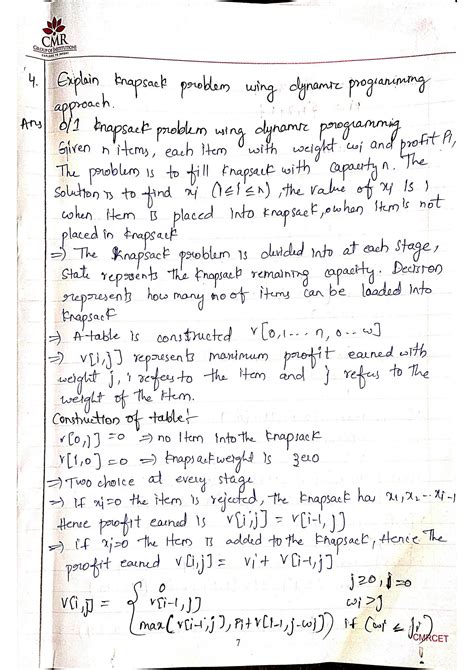 CMR
GROUP OF INSTITUTIONS
EXPLORE TO INVENT
4. Explain knapsack problem using dynamic programming
approach.
Ans 0/1 knapsack problem using dynamic programming
Given n items, each item with weight wi and profit Pi,
The problem is to fill knapsack with capacity n. The
Solution is to find xj (1≤i≤n), the value of xj is 1
when Item is placed into knapsack, 0 when item is not
placed in knapsack
=) The knapsack problem is divided into at each stage,
State reprsents the knapsack remaining capacity. Decision
represents how many no of items can be loaded into
knapsack
=> A-table is constructed V[0,1... n, 0.. w]
=> V[i,j] represents maximum profit earned with
weight j, i refers to the Item and j refers to the
weight of the Item.
Construction of table:-
V[0,j] =0 => no Item into the knapsack
V[1,0] =0 => knapsack weight is zero
=> Two choice at every stage
=> If xj=0 the item is rejected, the knapsack has x1,x2...xi-1
Hence profit earned is V[i,j] = V[i-1,j]
=> if xj=0 the Item is added to the knapsack, Hence The
profit earned V[i,j] = vi + V[i-1,j]
V[i,j] = { 0 j≥0, j=0
V[i-1,j] wi>j
max(V[i-1,j], Pi+V[i-1,j-wj)) if (wi ≤ ji)
7
CMRCET